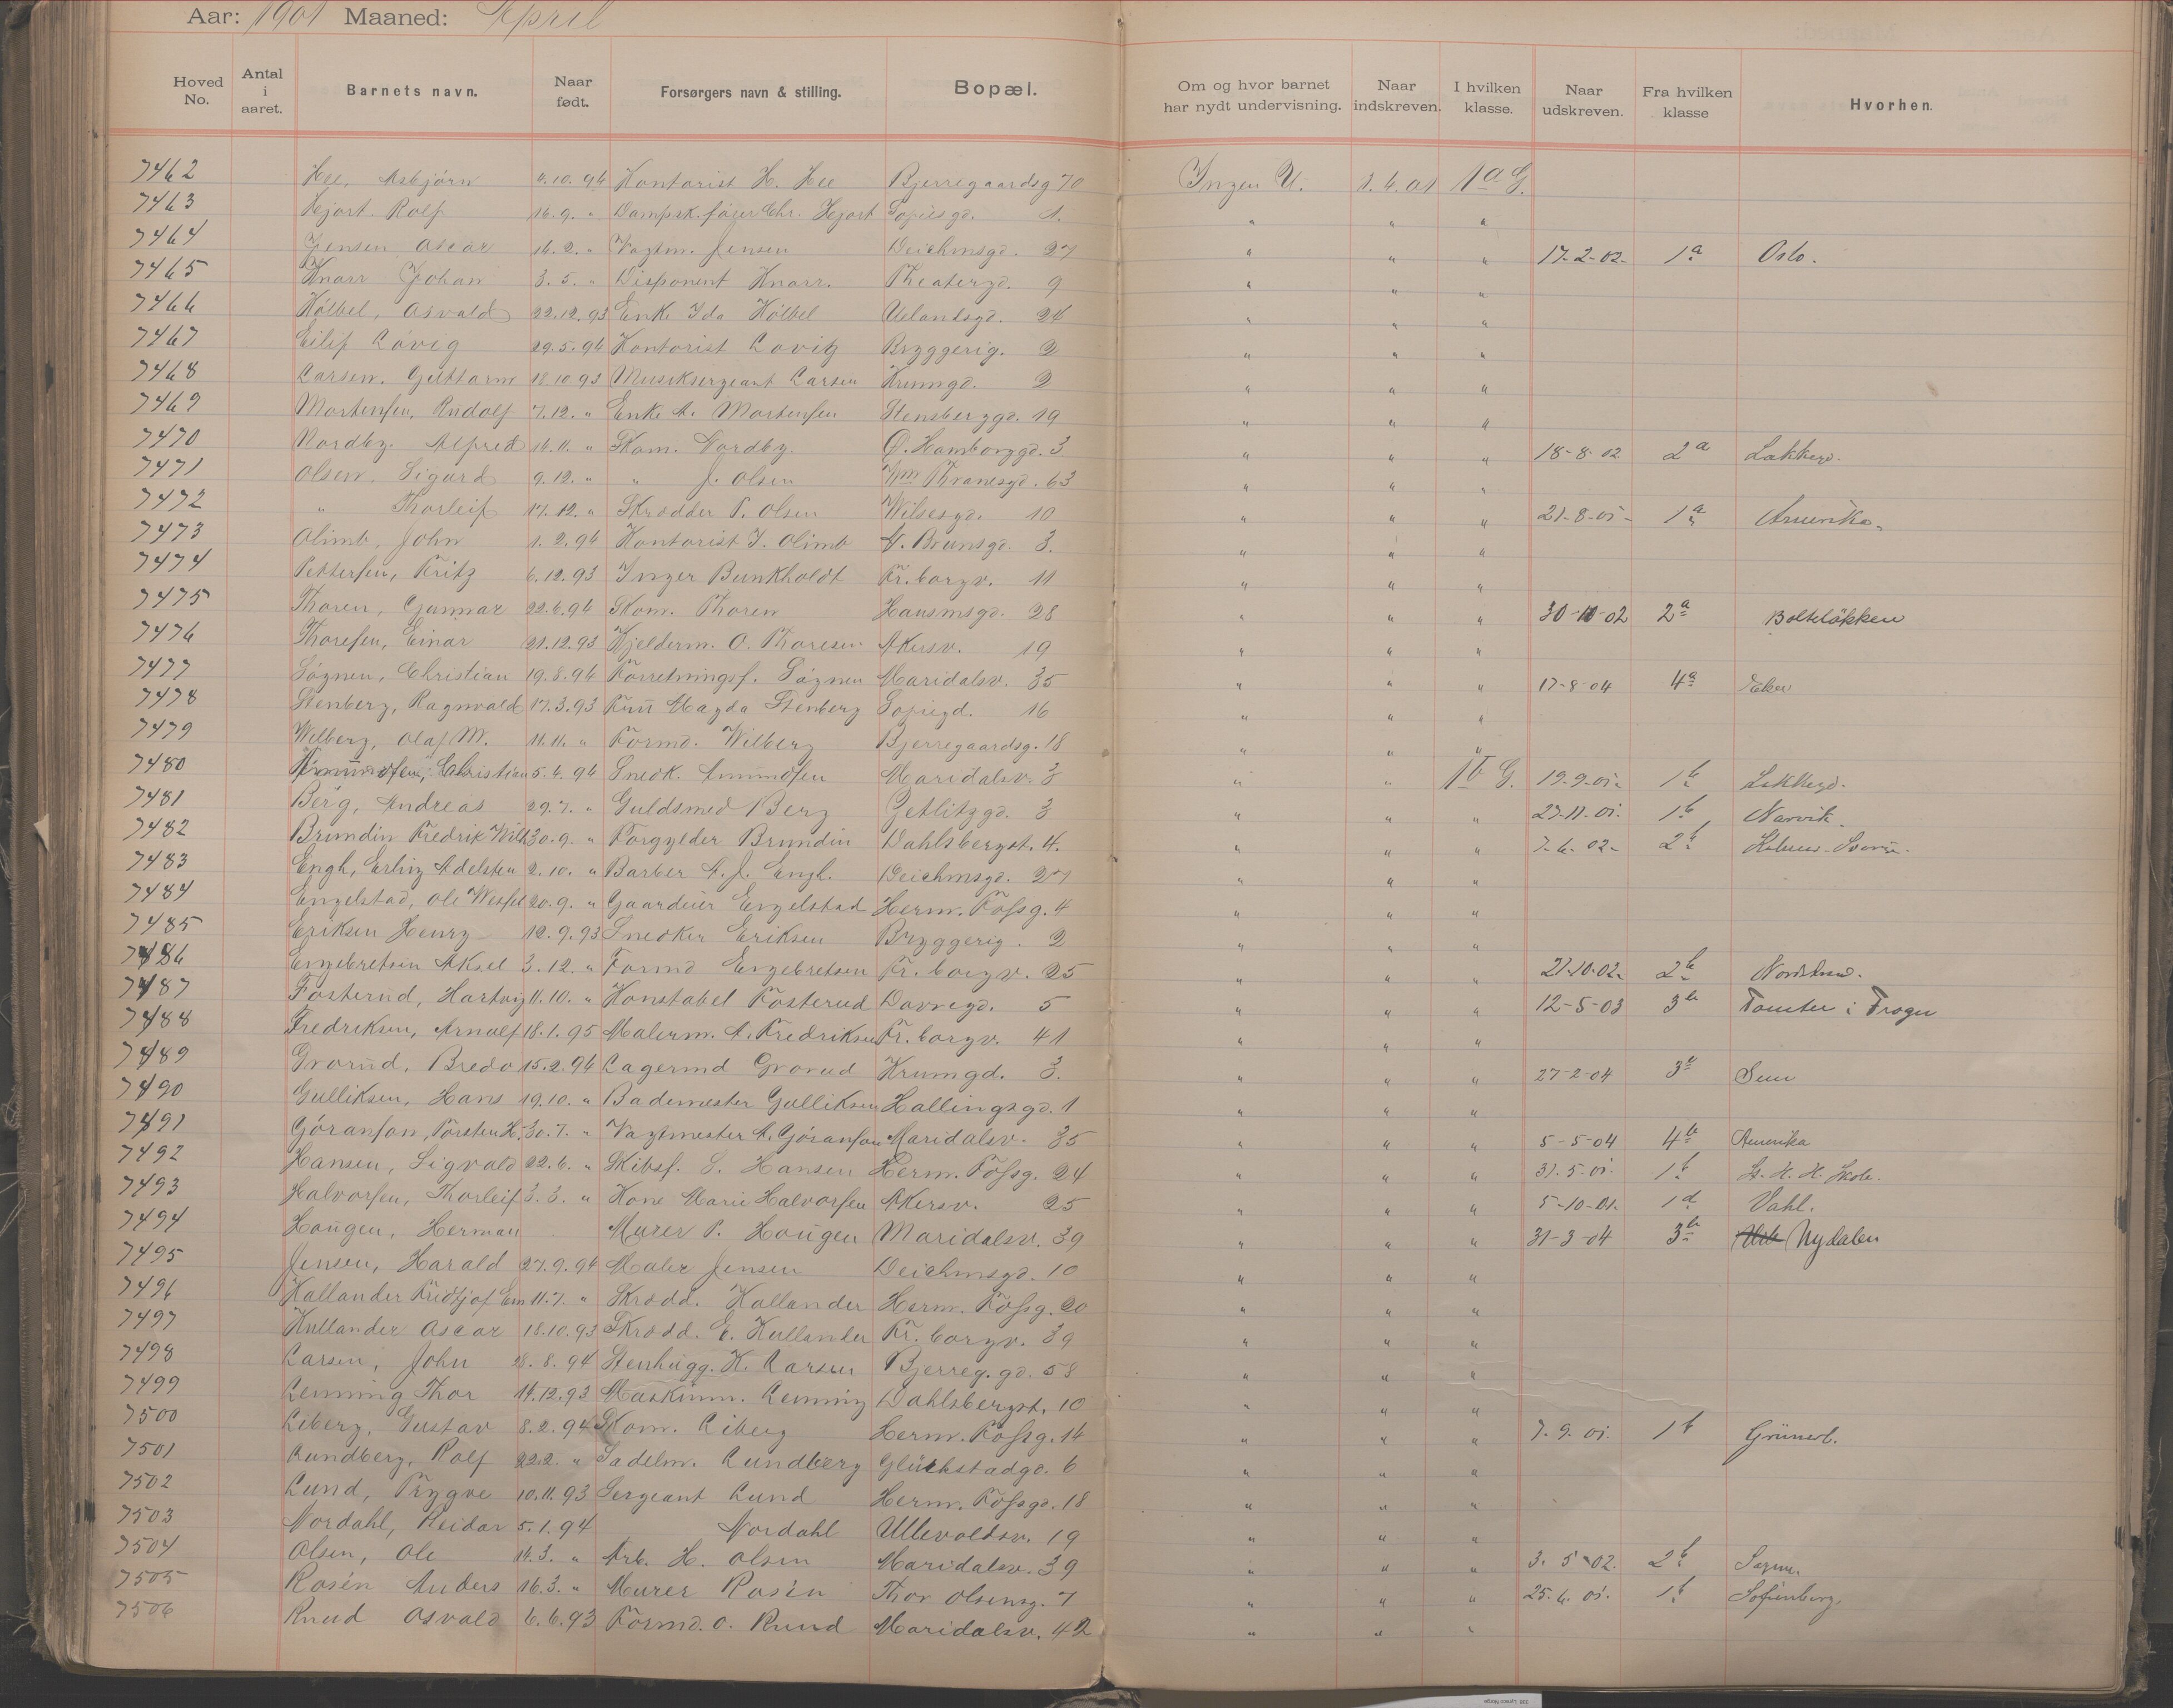 Aar: 1901 Maaned: April
Hoved No. Antal i aaret. Barnets navn. Naar født. Forsørgers navn & stilling. Bopæl. Om og hvor barnet har nydt undervisning. Naar indskreven. I hvilken klasse. Naar udskreven. Fra hvilken klasse Hvorhen.
7462 Hee, Asbjörn 11.10.94 Kontorist H. Hee Bjerregaardsg 70 Ingen U. 1.4.01 1a G.
7463 Hjort. Rolf 16.9. " Dampsk.fører Chr. Hjort Sofiesgd. 1. " " "
7464 Jensen Oscar 14.2. " Vagtm. Jensen Deichmsgd. 27 " " " 17-2-02- 1a Oslo.
7465 Knarr Johan 3.5. " Disponent Knarr. Theatergd. 9 " " "
7466 Kölbel, Osvald 22.12.93 Enke Ida Kölbel Uelandsgd. 24 " " "
7467 Eilif Lövig 29.5.94 Kontorist Lovig Bryggerig. 2 " " "
7468 Larsen. Guttorm 18.10.93 Musiksergeant Larsen Krumgd. 2 " " "
7469 Mortensen, Rudolf 7.12. " Enke A. Mortensen Stensberggd. 19 " " "
7470 Nordby. Alfred 16.11. " Skom. Nordby. Ø. Hamborggd. 3 " " " 18-8-02 2a Lakkegd.
7471 Olsen, Sigurd 9.12. " " J. Olsen Wm Thranesgd. 63 " " "
7472 " Thorleif 17.12. " Skrædder P. Olsen Wilsesgd. 10 " " " 21-8-01- 1a Amerika.
7473 Olimb, John 1.2.94 Kontorist J. Olimb N. Brunsgd. 3. " " "
7474 Pettersen, Fritz 6.12.93 Inger Bunkholdt Fr.borgv. 11 " " "
7475 Thoren, Gunnar 22.6.94 Skom. Thoren Hausmsgd. 28 " " " 30-11-02 2a Bolteløkken
7476 Thoresen, Einar 21.12.93 Kjelderm. O. Thoresen Akersv. 19 " " "
7477 Sögnen, Christian 19.8.94 Forretningsf. Sögnen Maridalsv. 35 " " " 17-8-04 4a
7478 Stenberg, Ragnvald 17.3.93 Frü Magda Stenberg Sofiegd. 16 " " "
7479 Wilberg, Olaf M. 11.11. " Formd. Wilberg Bjerregaardsg. 18 " " "
7480 Amundsen, Christian 5.4.94 Snedk. Amundsen Maridalsv. 3 " " 1b G. 19-9-01- 1b Lakkegd.
7481 Berg, Andreas 29.7. " Guldsmed Berg Getlitzgd. 3 " " " 27-11-01. 1b Narvik.
7482 Brundin Fredrik Wilh. 30.9. " Forgylder Brundin Dahlsbergst. 4. " " " 7-6-02- 2b
7483 Engh, Erling Adelsten 2.10. " Barber A.J. Engh. Deichmsgd. 27 " " "
7484 Engelstad, Ole Wessel 20.9. " Gaardeier Engelstad Herm. Fossg. 4 " " "
7485 Eriksen Henry 12.9.93 Snedker Eriksen Bryggerig. 2 " " "
7486 Engebretsen Aksel 3.12. " Formd Engebretsen Fr.borgv. 25 " " " 21-10-02. 2b
7487 Fosterud, Hartvig 11.10. " Konstabel Fosterud Dovregd. 5 " " " 12-5-03 3b Tomter i Trøgst
7488 Fredriksen, Arnulf 18.1.95 Malerm. A. Fredriksen Fr.borgv. 41 " " "
7489 Grorud, Bredo 15.2.94 Lagermd Grorud Krumgd. 3. " " " 27-2-04 3b
7490 Gulliksen, Hans 19.10. " Bademester Gulliksen Hallingsgd. 1 " " "
7491 Göranson, Torsten H. 30.7. " Vagtmester A. Göranson Maridalsv. 35 " " " 5-5-04 4b Amerika
7492 Hansen, Sigvald 22.6. " Skibsf. S. Hansen Herm. Fossg. 24 " " " 31.5-01. 1b St. H. H. Skole.
7493 Halvorsen, Thorleif 3.3. " Kone Marie Halvorsen Akersv. 25 " " " 5-10-01. 1d Vahl.
7494 Hougen, Herman Murer P. Hougen Maridalsv. 39 " " " 31-3-04 3b Nydalen
7495 Jensen, Harald 27.9.94 Maler Jensen Deichmsgd. 10 " " "
7496 Kallander Fridtjof Em 11.7. " Skrædd. Kallander Herm. Fossg. 20 " " "
7497 Kullander Oscar 18.10.93 Skrædd. E. Kullander Fr.borgv. 39 " " "
7498 Larsen, John 28.8.94 Stenhugg. K. Larsen Bjerreg.gd. 58 " " "
7499 Lenning Thor 14.12.93 Maskinm. Lenning Dahlsbergst. 10 " " "
7500 Liberg, Gustav 8.2.94 Skom. Liberg Herm. Fossg. 14 " " " 7.9.01. 1b Grünerl.
7501 Lundberg, Rolf 22.2. " Sadelm. Lundberg Glückstadgd. 6 " " "
7502 Lund, Trygve 10.11.93 Sergeant Lund Herm. Fossgd. 18 " " "
7503 Nordahl, Reidar 5.1.94 Nordahl Ullevoldsv. 19 " " "
7504 Olsen, Ole 14.3. " Arb. H. Olsen Maridalsv. 39 " " " 3.5-02. 2b Sagene.
7505 Rosén Anders 16.3. " Murer Rosén Thor Olsensg. 7 " " " 25.6.01. 1b Sofienberg.
7506 Ruud Osvald 6.6.93 Formd. O. Ruud Maridalsv. 42 " " "